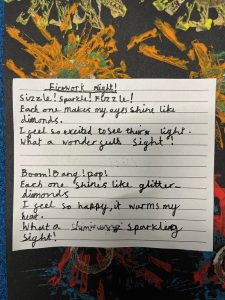 Firework night!
Sizzle! Sparkle! Fizzle!
Each one makes my eyes shine like
dimonds.
I feel so excited to see light.
What a wonderfull sight!
Boom! Bang! pop!
Each one shines like glitter
diamonds
I feel so happy it warms my
hear.
What a sparkling
sight!